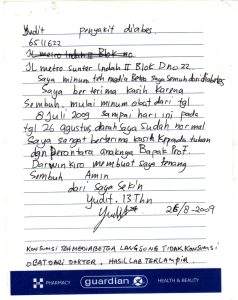 Yudit penyakit diabes.
6511622
JL metro Indah II Blok no
JL metro sunter Indah II Blok D no 22
Saya minum teh media Betea Saya Sembuh dari diabetes
Saya berterima kasih karena
Sembuh. mulai minum obat dari tgl
8 Juli 2009 sampai hari ini pada
tgl 26 agustus darah Saya Sudah normal
Saya sangat berterima kasih kepada tuhan
dan perantara anaknya Bapak Prof.
Darwin Kiro membuat saya tenang
Sembuh Amin
dari Saya Sekin
Yudit. 13 Thn
Yudit 26/8-2009
KONSUMSI TEH MEDIABETEA LANGSUNG TIDAK KONSUMSI
OBAT DARI DOKTER, HASIL LAB TERLAMPIR.
PHARMACY guardian HEALTH & BEAUTY